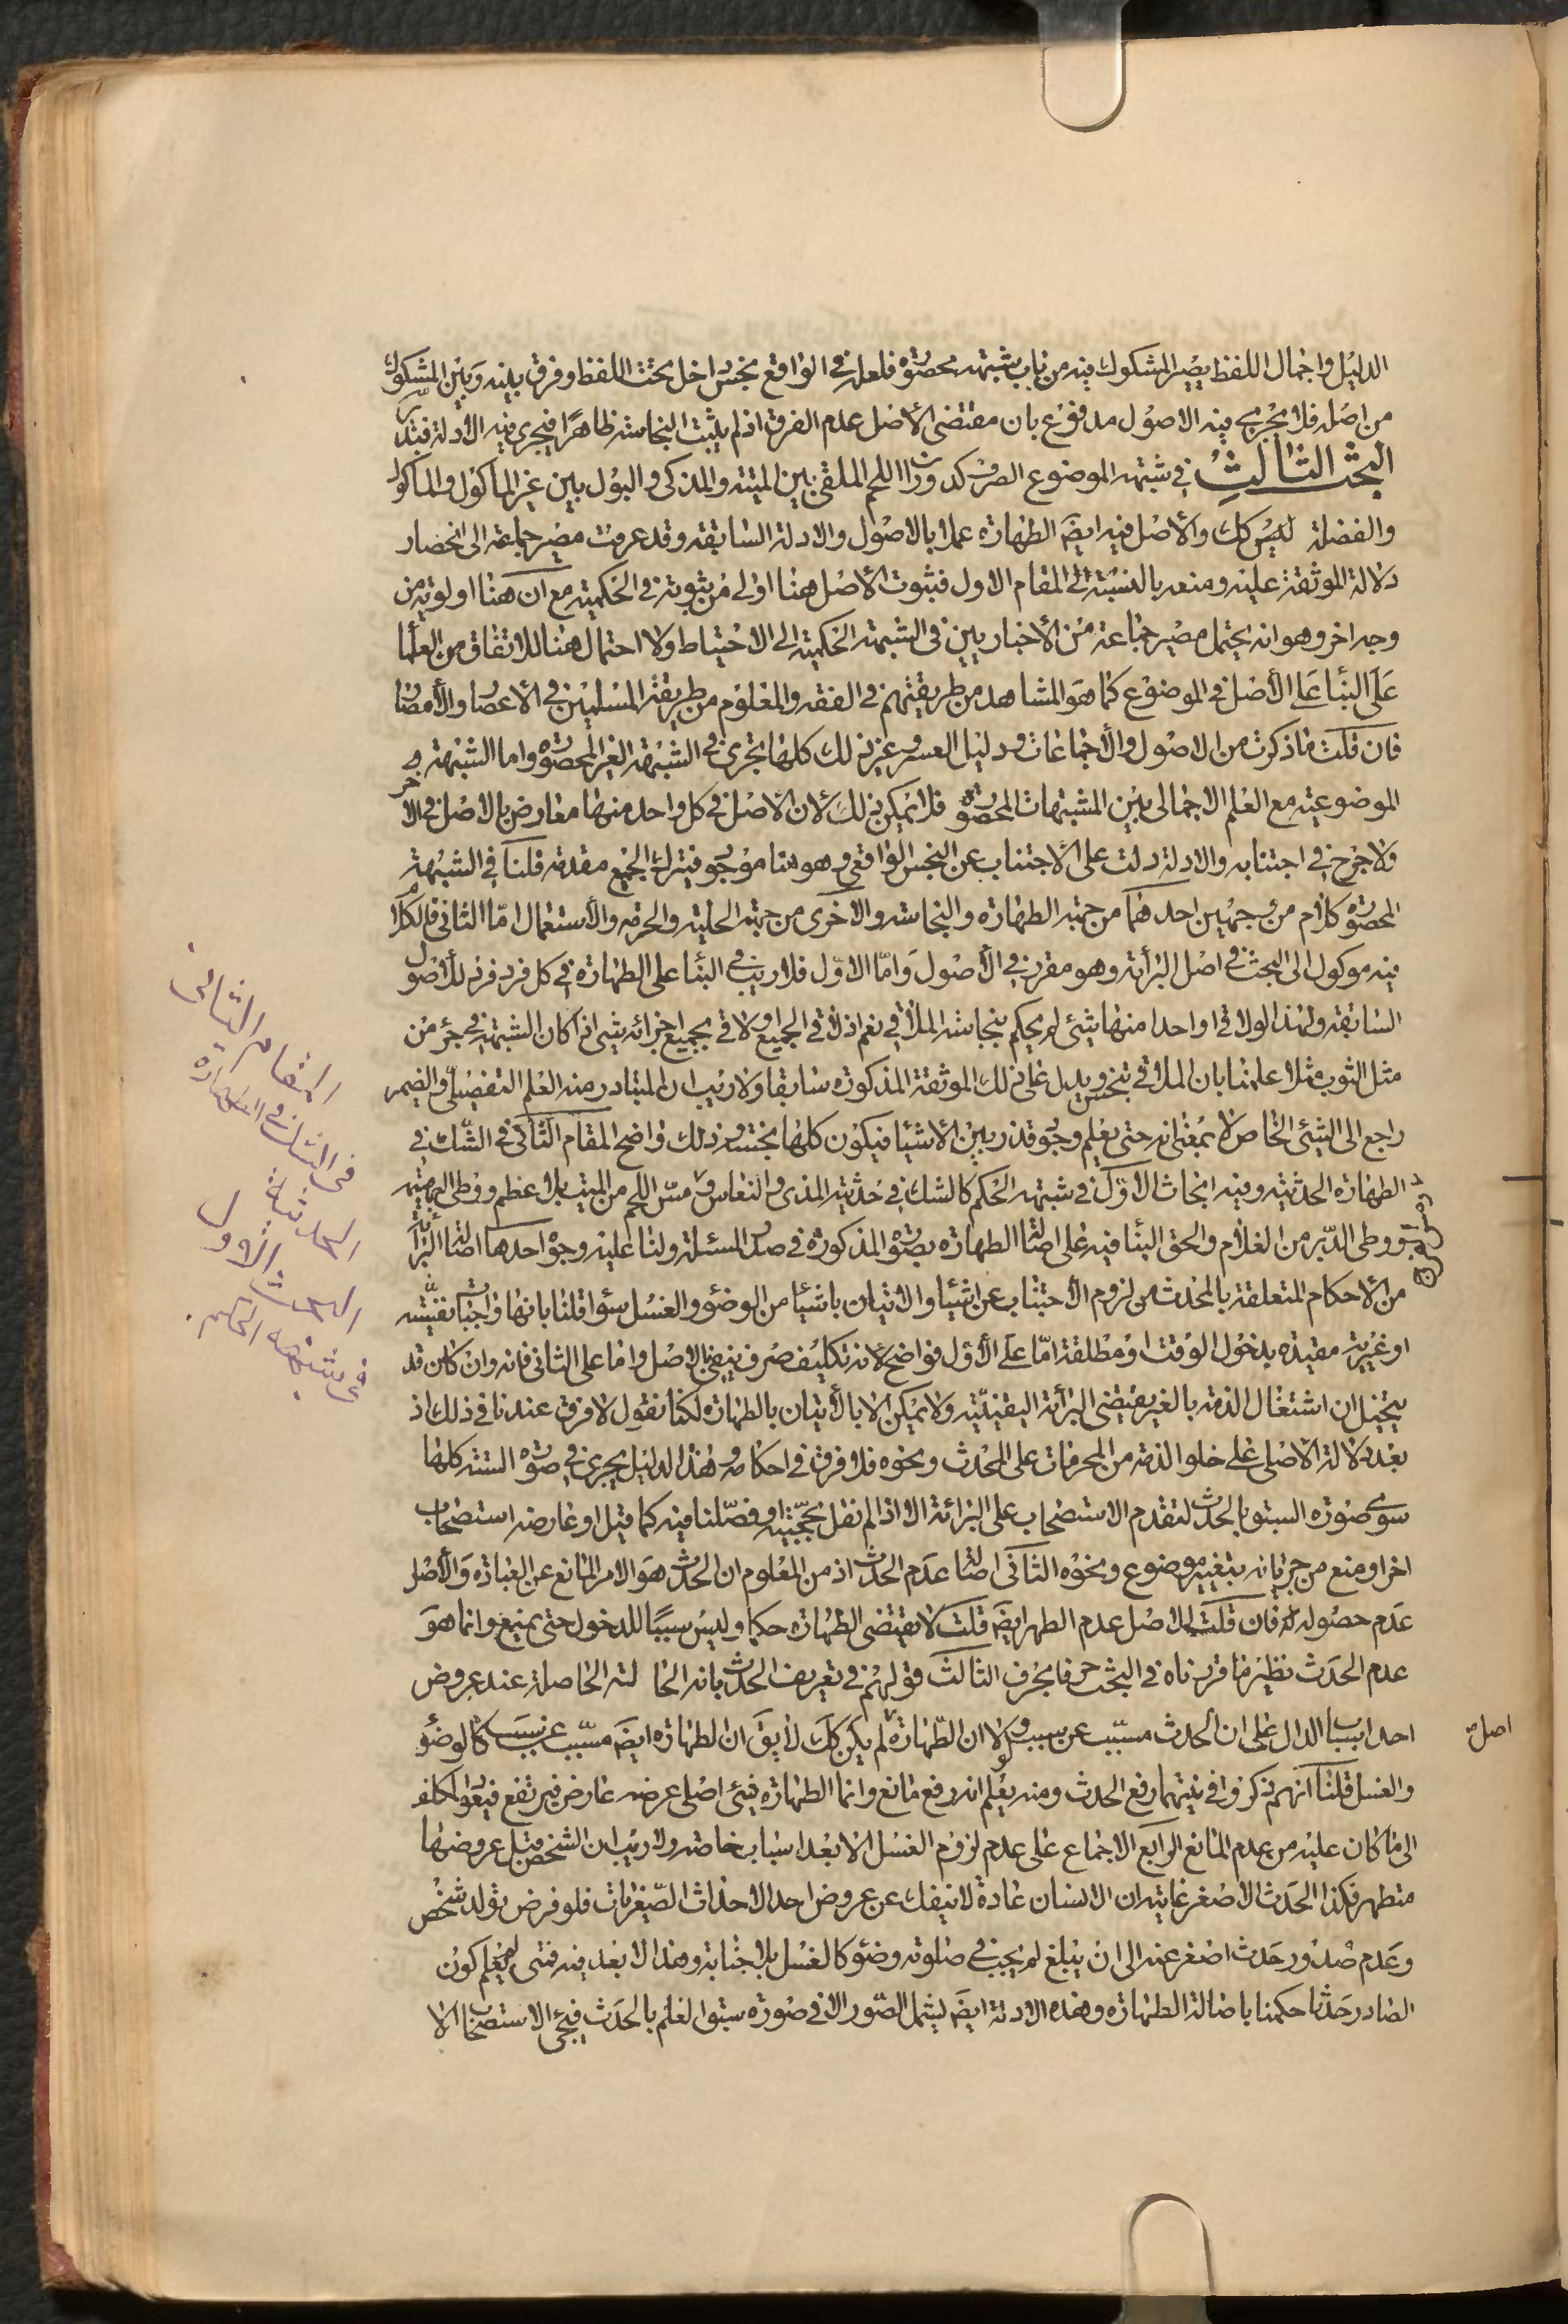 الدليل واجمال اللفظ يصير المشكوك فيه من باب شبهته محصورة فلعله في الواقع نجس داخل تحت اللفظ وفرق بينه وبين المشكوك
من اصله فلا يجرى فيه الاصول مدفوع بان مقتضى الاصل عدم الفرق اذ لم يثبت النجاسة ظاهرا فيجرى فيه الادلة فتدبر
البحث الثالث في شبهته الموضوع الصرف كدوران اللحم الملقى بين الميتة والمذكى والبول بين غير المأكول والمأكول
والفضلة ليس كك والاصل فيه ايضا الطهارة عملا بالاصول والادلة السابقة وقد عرفت مصير جماعة الى انحصار
دلالة الموثقة عليه ومنعه بالنسبة الى المقام الاول فثبوت الاصل هنا اولى من ثبوته في الحكمية مع ان هنا اولوية من
وجه اخر وهو انه يحتمل مصير جماعة من الأخباريين في الشبهة الحكمية الى الاحتياط ولا احتمال هنا للاتفاق من العلما
على البناء على الأصل في الموضوع كما هو المشاهد من طريقتهم في الفقه والمعلوم من طريقة المسلمين في الاعصار والأمصار
فان قلت ما ذكرت من الاصول والاجماعات ودليل العسر وغير ذلك كلها تجرى في الشبهة الغير المحصورة واما الشبهة
الموضوعية مع العلم الاجمالى بين المشتبهات المحصورة فلا يمكن ذلك لأن الأصل في كل واحد منها معارض بالاصل في الاخر
ولا حرج في اجتنابه والادلة دلت على الاجتناب عن النجس الواقعى وهو هنا موجود فيترك الجميع مقدمة قلنا في الشبهة
المحصورة كلام من وجهين احدهما من جهة الطهارة والنجاسة والاخرى من جهة الحلية والحرمة والاستعمال امّا الثانى فالكلام
فيه موكول الى البحث في اصل البرائة وهو مقرر في الأصول وامّا الاوّل فلا ريب في البناء على الطهارة في كل فرد فرد للأصول
السابقة ولهذا لو لاقى واحدا منها شيئ لم يحكم بنجاسة الملاقى نعم اذ لاقى الجميع او لاقى بجميع اجزائه شيئ اذا كان الشبهة في جزء من
مثل الثوب مثلا علمنا بان الملاقى تنجس ويدل على ذلك الموثقة المذكورة سابقا ولا ريب ان المتبادر منه العلم التفصيلى والضمير
راجع الى الشيئ الخاص لا بمعنى انه حتى يعلم وجود قذر بين الأشياء فيكون كلها نجسة وذلك واضح المقام الثانى في الشك في
الطهارة الحدثية وفيه ابحاث الأول في شبهته الحكم كالشك في حدثية المذى والنعاس ومسّ اللحم من الميت بلا عظم ووطى البهيمة
ووطى الدبر من الغلام والحق البناء فيه على اصالة الطهارة بصورة المذكورة في صدر المسئلة ولنا عليه وجوه احدها اصالة البرائة
من الأحكام المتعلقة بالمحدث من لزوم الأجتناب عن اشياء والاتيان باشياء من الوضوء والغسل سواء قلنا بانها واجبات نفسية
او غيرية مقيدة بدخول الوقت او مطلقة امّا على الأول فواضح لأنه تكليف صرف ينفى بالاصل واما على الثانى فانه وان كان قد
يتخيل ان اشتغال الذمة بالغير يقتضى البرائة اليقينية ولا يمكن الا بالأتيان بالطهارة لكنا نقول لا فرق عندنا في ذلك اذ
بعد دلالة الاصل على خلو الذمة من المحرمات على المحدث ونحوه فلا فرق في احكامه وهذا الدليل يجرى في صورة الستة كلها
سوى صورة السبق بالحدث لتقدم الاستصحاب على البرائة الا اذا لم نقل بحجّيته او فصّلنا فيه كما قيل او عارضه استصحاب
اخر او منع من جريانه بتغيير موضوع ونحوه الثانى اصالة عدم الحدث اذ من المعلوم ان الحدث هو الامر المانع عن العبادة والأصل
عدم حصوله فان قلت الاصل عدم الطهر ايضا قلت لا يقتضى الطهارة حكما وليس سببًا للدخول حتى يمنع وانما هو
عدم الحدث نظير ما قررناه في البحث فانحرف الثالث قولهم في تعريف الحدث بانه الحالة الحاصلة عند عروض
احد اسباب الدال على ان الحدث مسبّب عن سبب ولولا ان الطّهارة لم يكن كك لا يق ان الطهارة ايضا مسبّب عن سبب كالوضوء
والغسل قلنا انهم ذكروا في نيتهما رفع الحدث ومنه يعلم انه رفع مانع وانما الطهارة شيئ اصلى عرضه عارض فيرتفع فيعود المكلف
الى ما كان عليه من عدم المانع الرابع الاجماع على عدم لزوم الغسل الا بعد اسباب خاصة ولا ريب ان الشخص قبل عروضها
متطهر فكذا الحدث الاصغر غايته ان الانسان عادة لا ينفك عن عروض احد الاحداث الصّغريات فلو فرض تولد شخص
وعدم صدور حدث اصغر عنه الى ان يبلغ لم يجب في صلوته وضوء كالغسل بلا جنابة وهذا لا بعد فيه فمتى لم يعلم كون
الصادر حدثا حكمنا باصالة الطهارة وهذه الادلة ايضا يشمل الصّور الا في صورة سبق العلم بالحدث فيجئ الاستصحاب الا
المقام الثانى
في الشك في الطهارة
الحدثية
البحث الاول
في شبهة الحكم
اصل